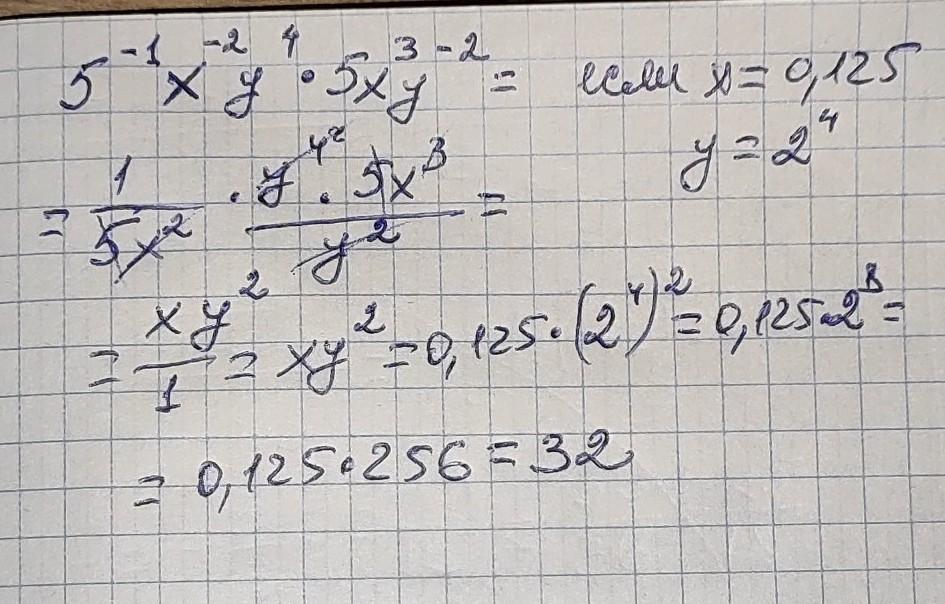 5⁻¹x⁻²y⁴ · 5x³y⁻² = если x = 0,125
y = 2⁴
= 1/(5x²) · (y⁴ ² · 5x³)/y² =
= xy²/1 = xy² = 0,125 · (2⁴)² = 0,125 · 2⁸ =
= 0,125 · 256 = 32